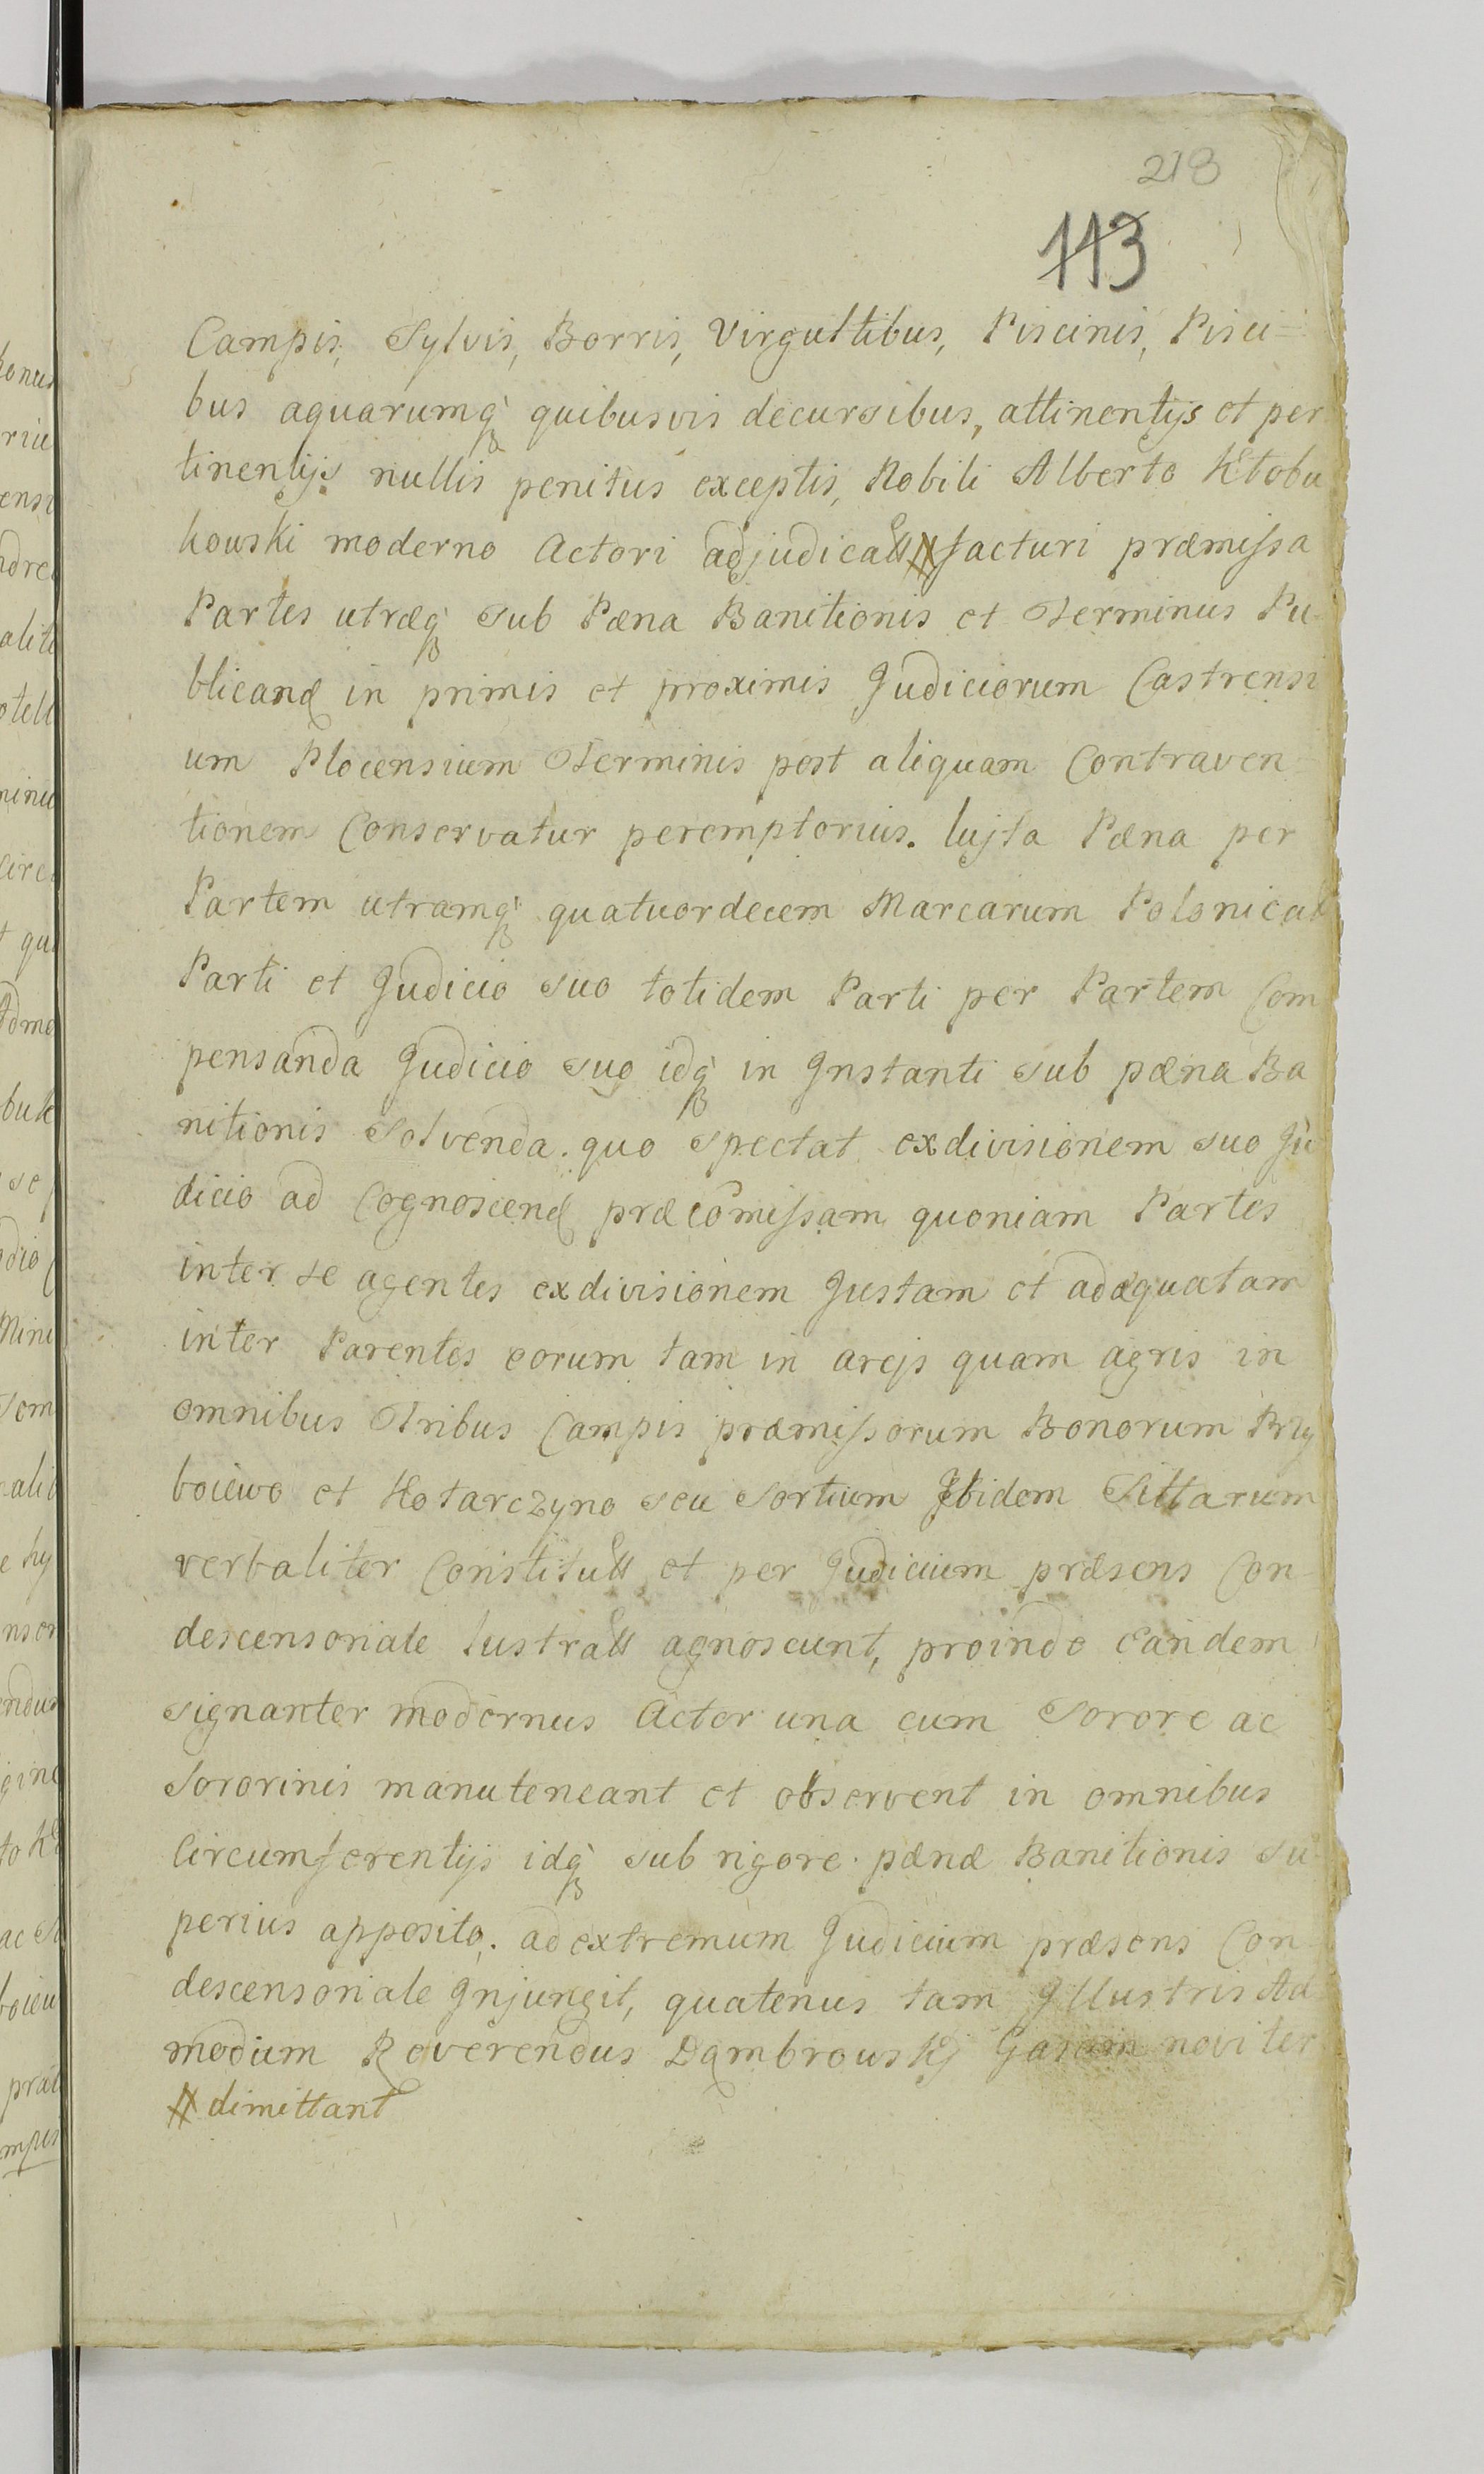 218
113
Campis, Sylvis, Borris, Virgultibus, Piscinis, Pisci=
bus aquarumq̀ quibusvis decursibus, attinentijs et per
tinentijs nullis penitus exceptis, Nobili Alberto Kłobu
kowski moderno Actori adjudicatt # facturi præmissa
Partes utræq̀ sub Pæna Banitionis et Terminus Pu
blicand in primis et proximis Judiciorum Castrensi
um Plocensium Terminis post aliquam Contraven=
tionem Conservatur peremptorius. lujta Pæna per
Partem utramq̀ quatuordecem Marcarum Polonical
Parti et Judicio suo totidem Parti per Partem Com
pensanda Judicio suo idq̀ in Jnstanti sub pæna Ba
nitionis Solvenda. quo Spectat exdivisionem suo Ju
dicio ad Cognoscend præcom̃issam quoniam Partes
inter se agentes exdivisionem Justam et adæquatam
inter Parentes eorum tam in areis quam agris in
omnibus Tribus Campis præmissorum Bonorum Przy
boiewo et Kotarczyno seu Sortium Jbidem Sittarum
verbaliter Constitutt et per Judicium præsens Con-
descensoriale lustratt agnoscunt, proinde eandem
signanter modernus Actor una cum Sorore ac
Sororinis manuteneant et observent in omnibus
Circumferentijs idq̀ sub rigore pænæ Banitionis su
perius apposito. ad extremum Judicium præsens Con
descensoriale Jnjungit, quatenus tam Jllustris Ad
modum Reverendus Dąmbrowskj noviter
# dimittant